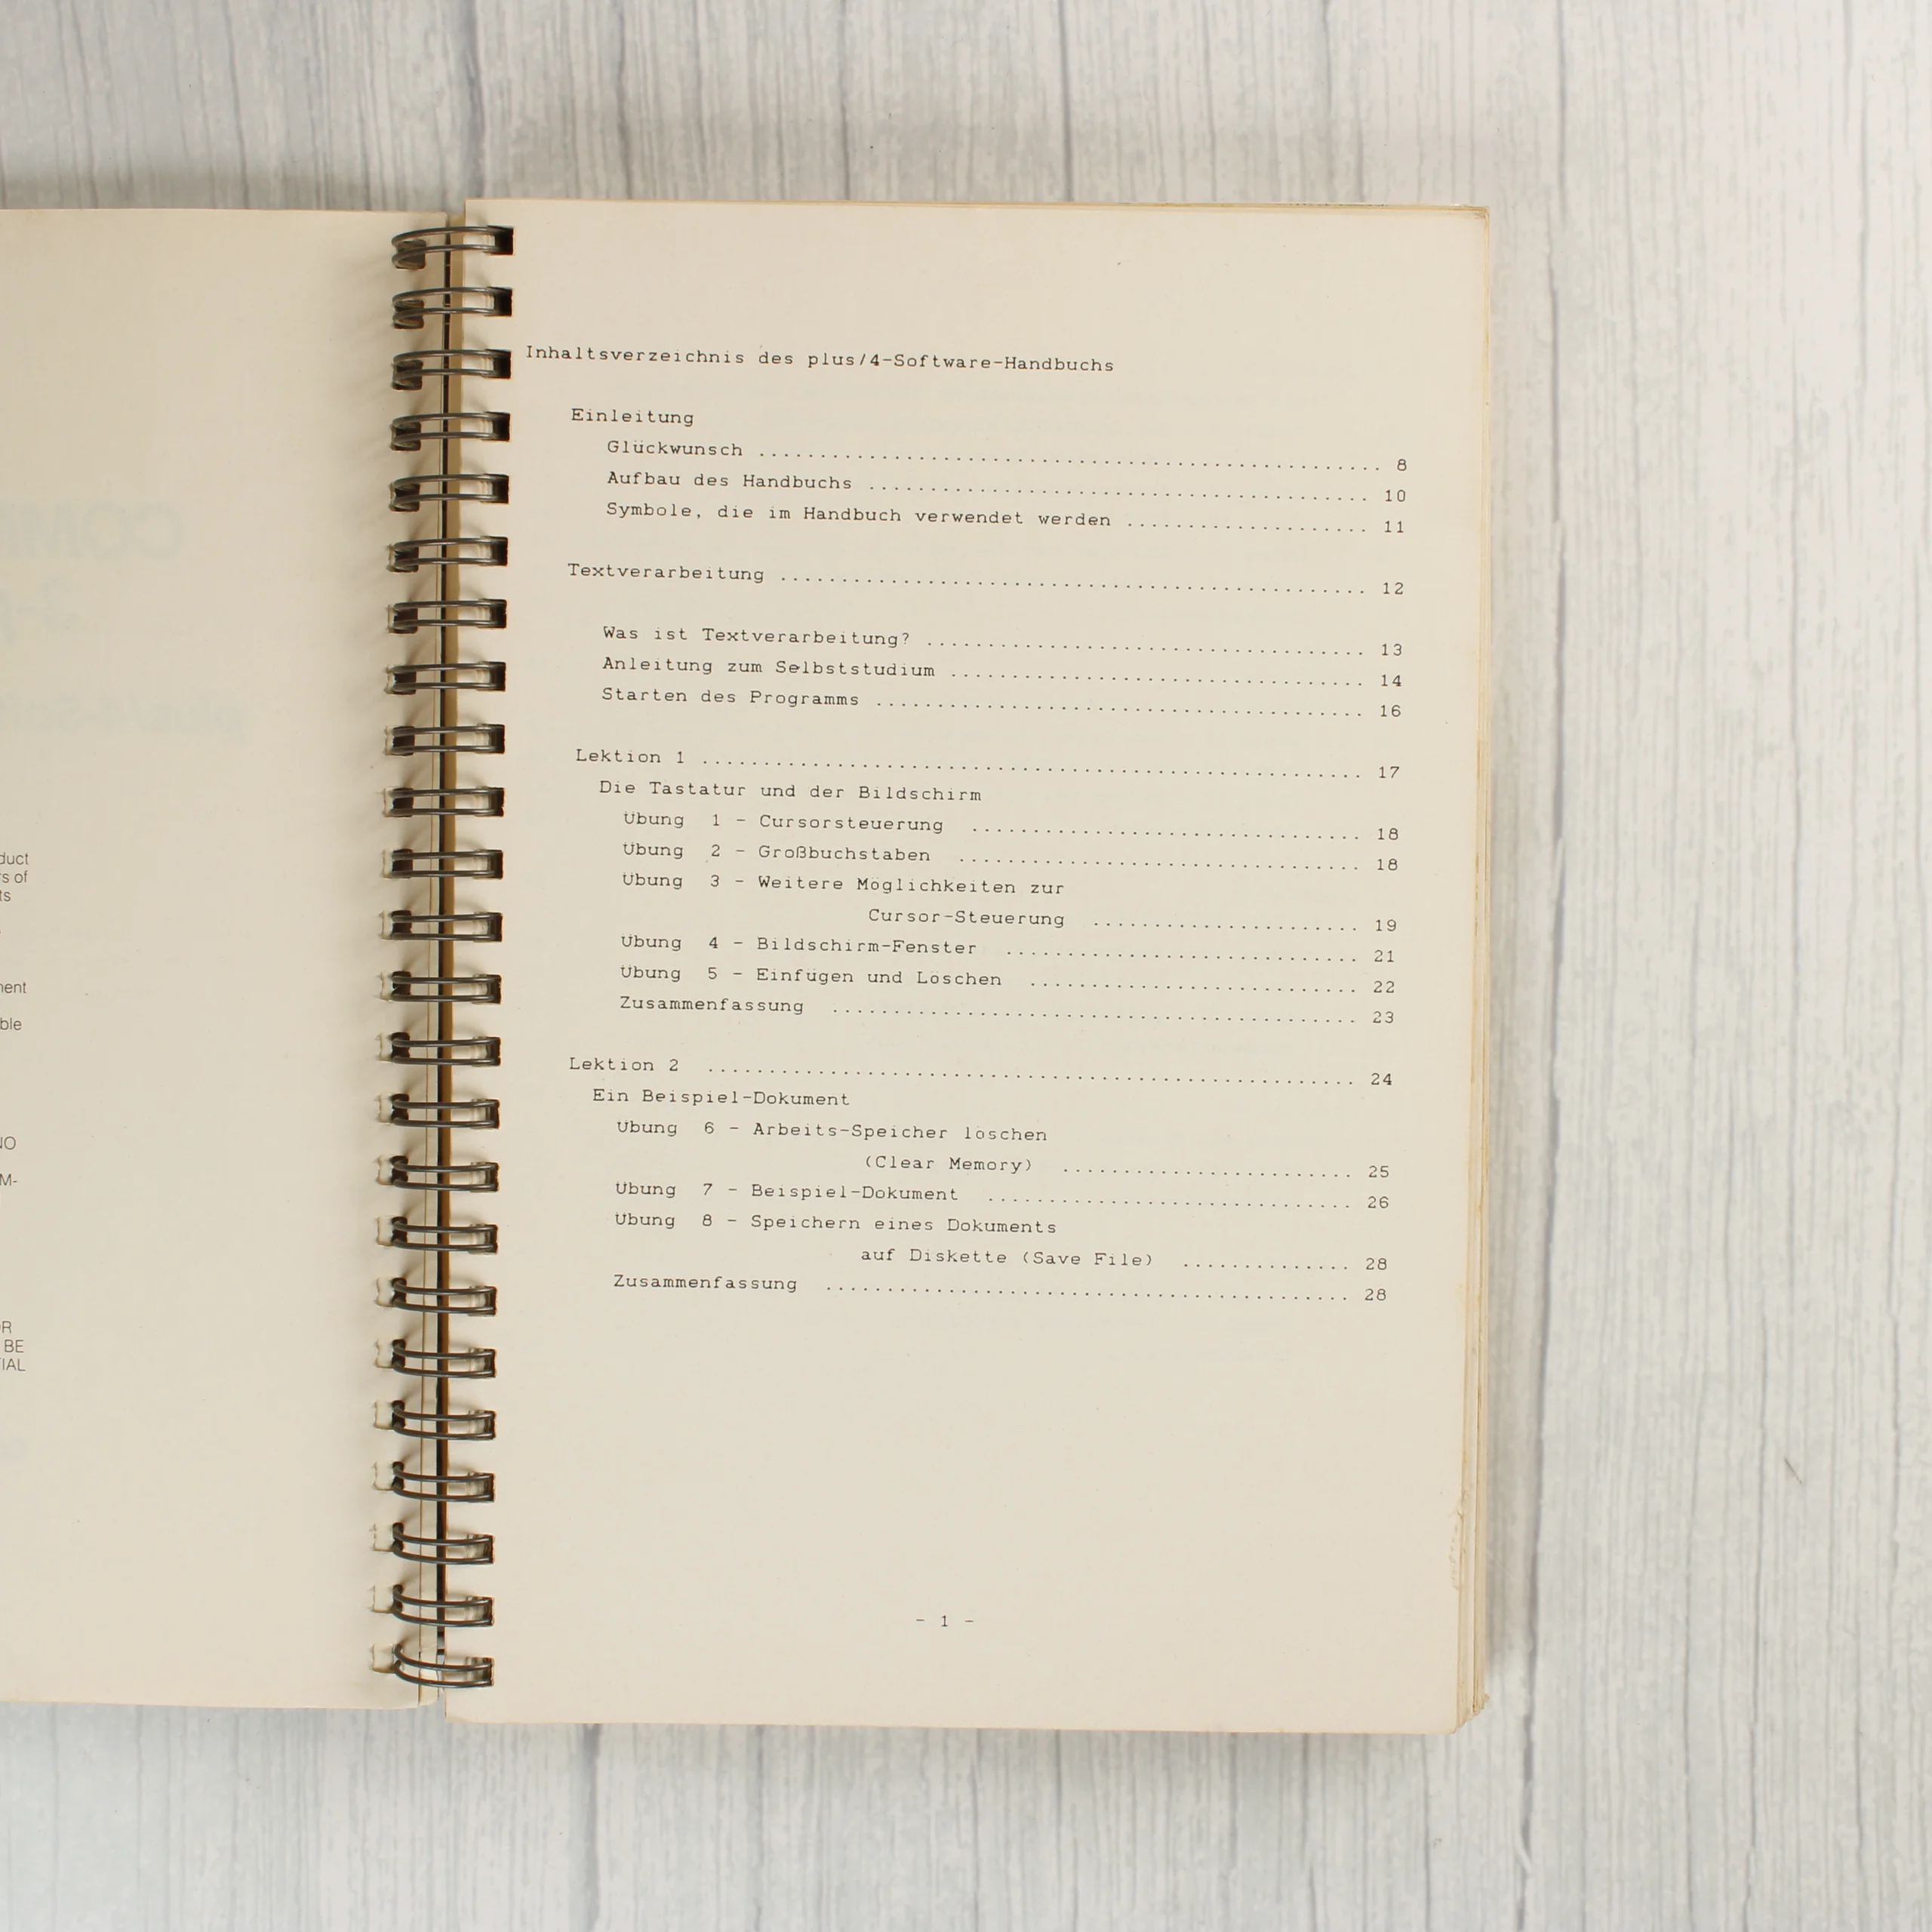 duct
s of
ts
ment
ble
NO
M-
OR
BE
TIAL
Inhaltsverzeichnis des plus/4-Software-Handbuchs
Einleitung
Glückwunsch .................................................. 8
Aufbau des Handbuchs ........................................ 10
Symbole, die im Handbuch verwendet werden .................... 11
Textverarbeitung ................................................ 12
Was ist Textverarbeitung? .................................... 13
Anleitung zum Selbststudium .................................. 14
Starten des Programms ........................................ 16
Lektion 1 ...................................................... 17
Die Tastatur und der Bildschirm
Übung 1 - Cursorsteuerung ................................ 18
Übung 2 - Großbuchstaben ................................. 18
Übung 3 - Weitere Möglichkeiten zur
Cursor-Steuerung ...................... 19
Übung 4 - Bildschirm-Fenster ............................. 21
Übung 5 - Einfügen und Löschen ........................... 22
Zusammenfassung ........................................... 23
Lektion 2 ..................................................... 24
Ein Beispiel-Dokument
Übung 6 - Arbeits-Speicher löschen
(Clear Memory) ........................ 25
Übung 7 - Beispiel-Dokument .............................. 26
Übung 8 - Speichern eines Dokuments
auf Diskette (Save File) .............. 28
Zusammenfassung ........................................... 28
- 1 -